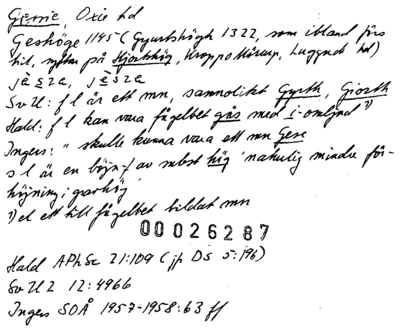 Gessie, Oxie hd
Geshöge 1145 (Gyurtshögh 1322, som ibland förs
hit, syftar på Hjortshög, Kroppo Mörarp, Luggude hd)
jèsze, jèsze
SvU: fl är ett mn, sannolikt Gyrth, Giorth
Hald: fl kan vara fågelbet gås med i-omljud ¹)
Ingers: " skulle kunna vara ett mn Gese
sl är en böjn.f av subst hög 'naturlig mindre för-
höjning; gravhög'
¹) el ett till fågelbet bildat mn
00026287
Hald APhSc 21:109 (jfr DS 5:196)
SvU 2 12:4966
Ingers SOÅ 1957-1958:63 ff